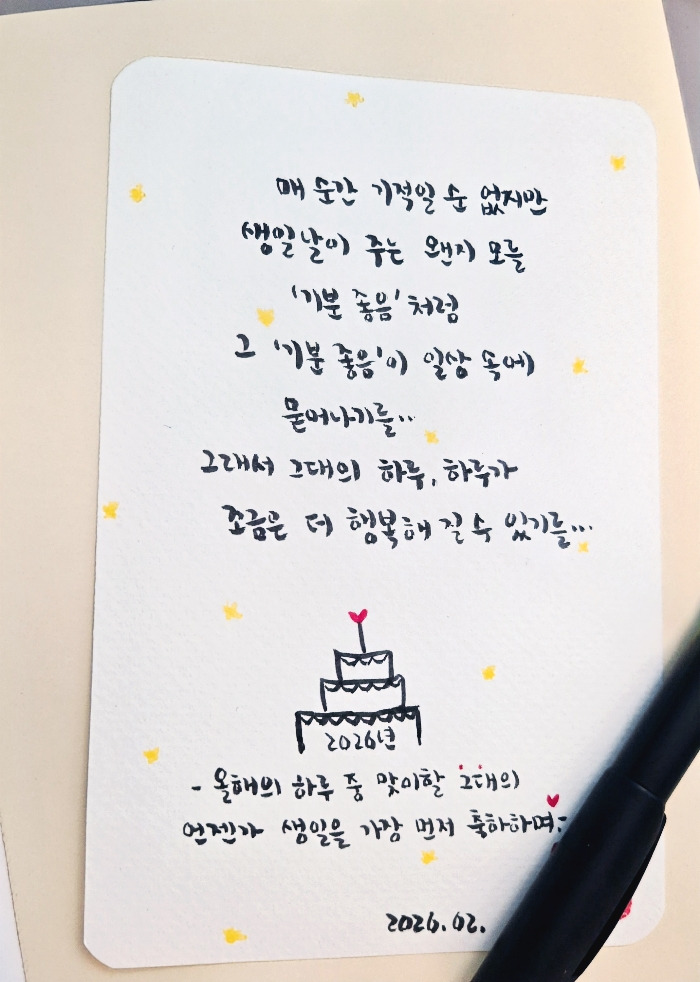 매 순간 기적일 순 없지만
생일날이 주는 왠지 모를
'기분 좋음'처럼
그 '기분 좋음'이 일상 속에
묻어나기를...
그래서 그대의 하루, 하루가
조금은 더 행복해 질 수 있기를...
2026년
- 올해의 하루 중 맞이할 그대의
언젠가 생일을 가장 먼저 축하하며-
2026.02.